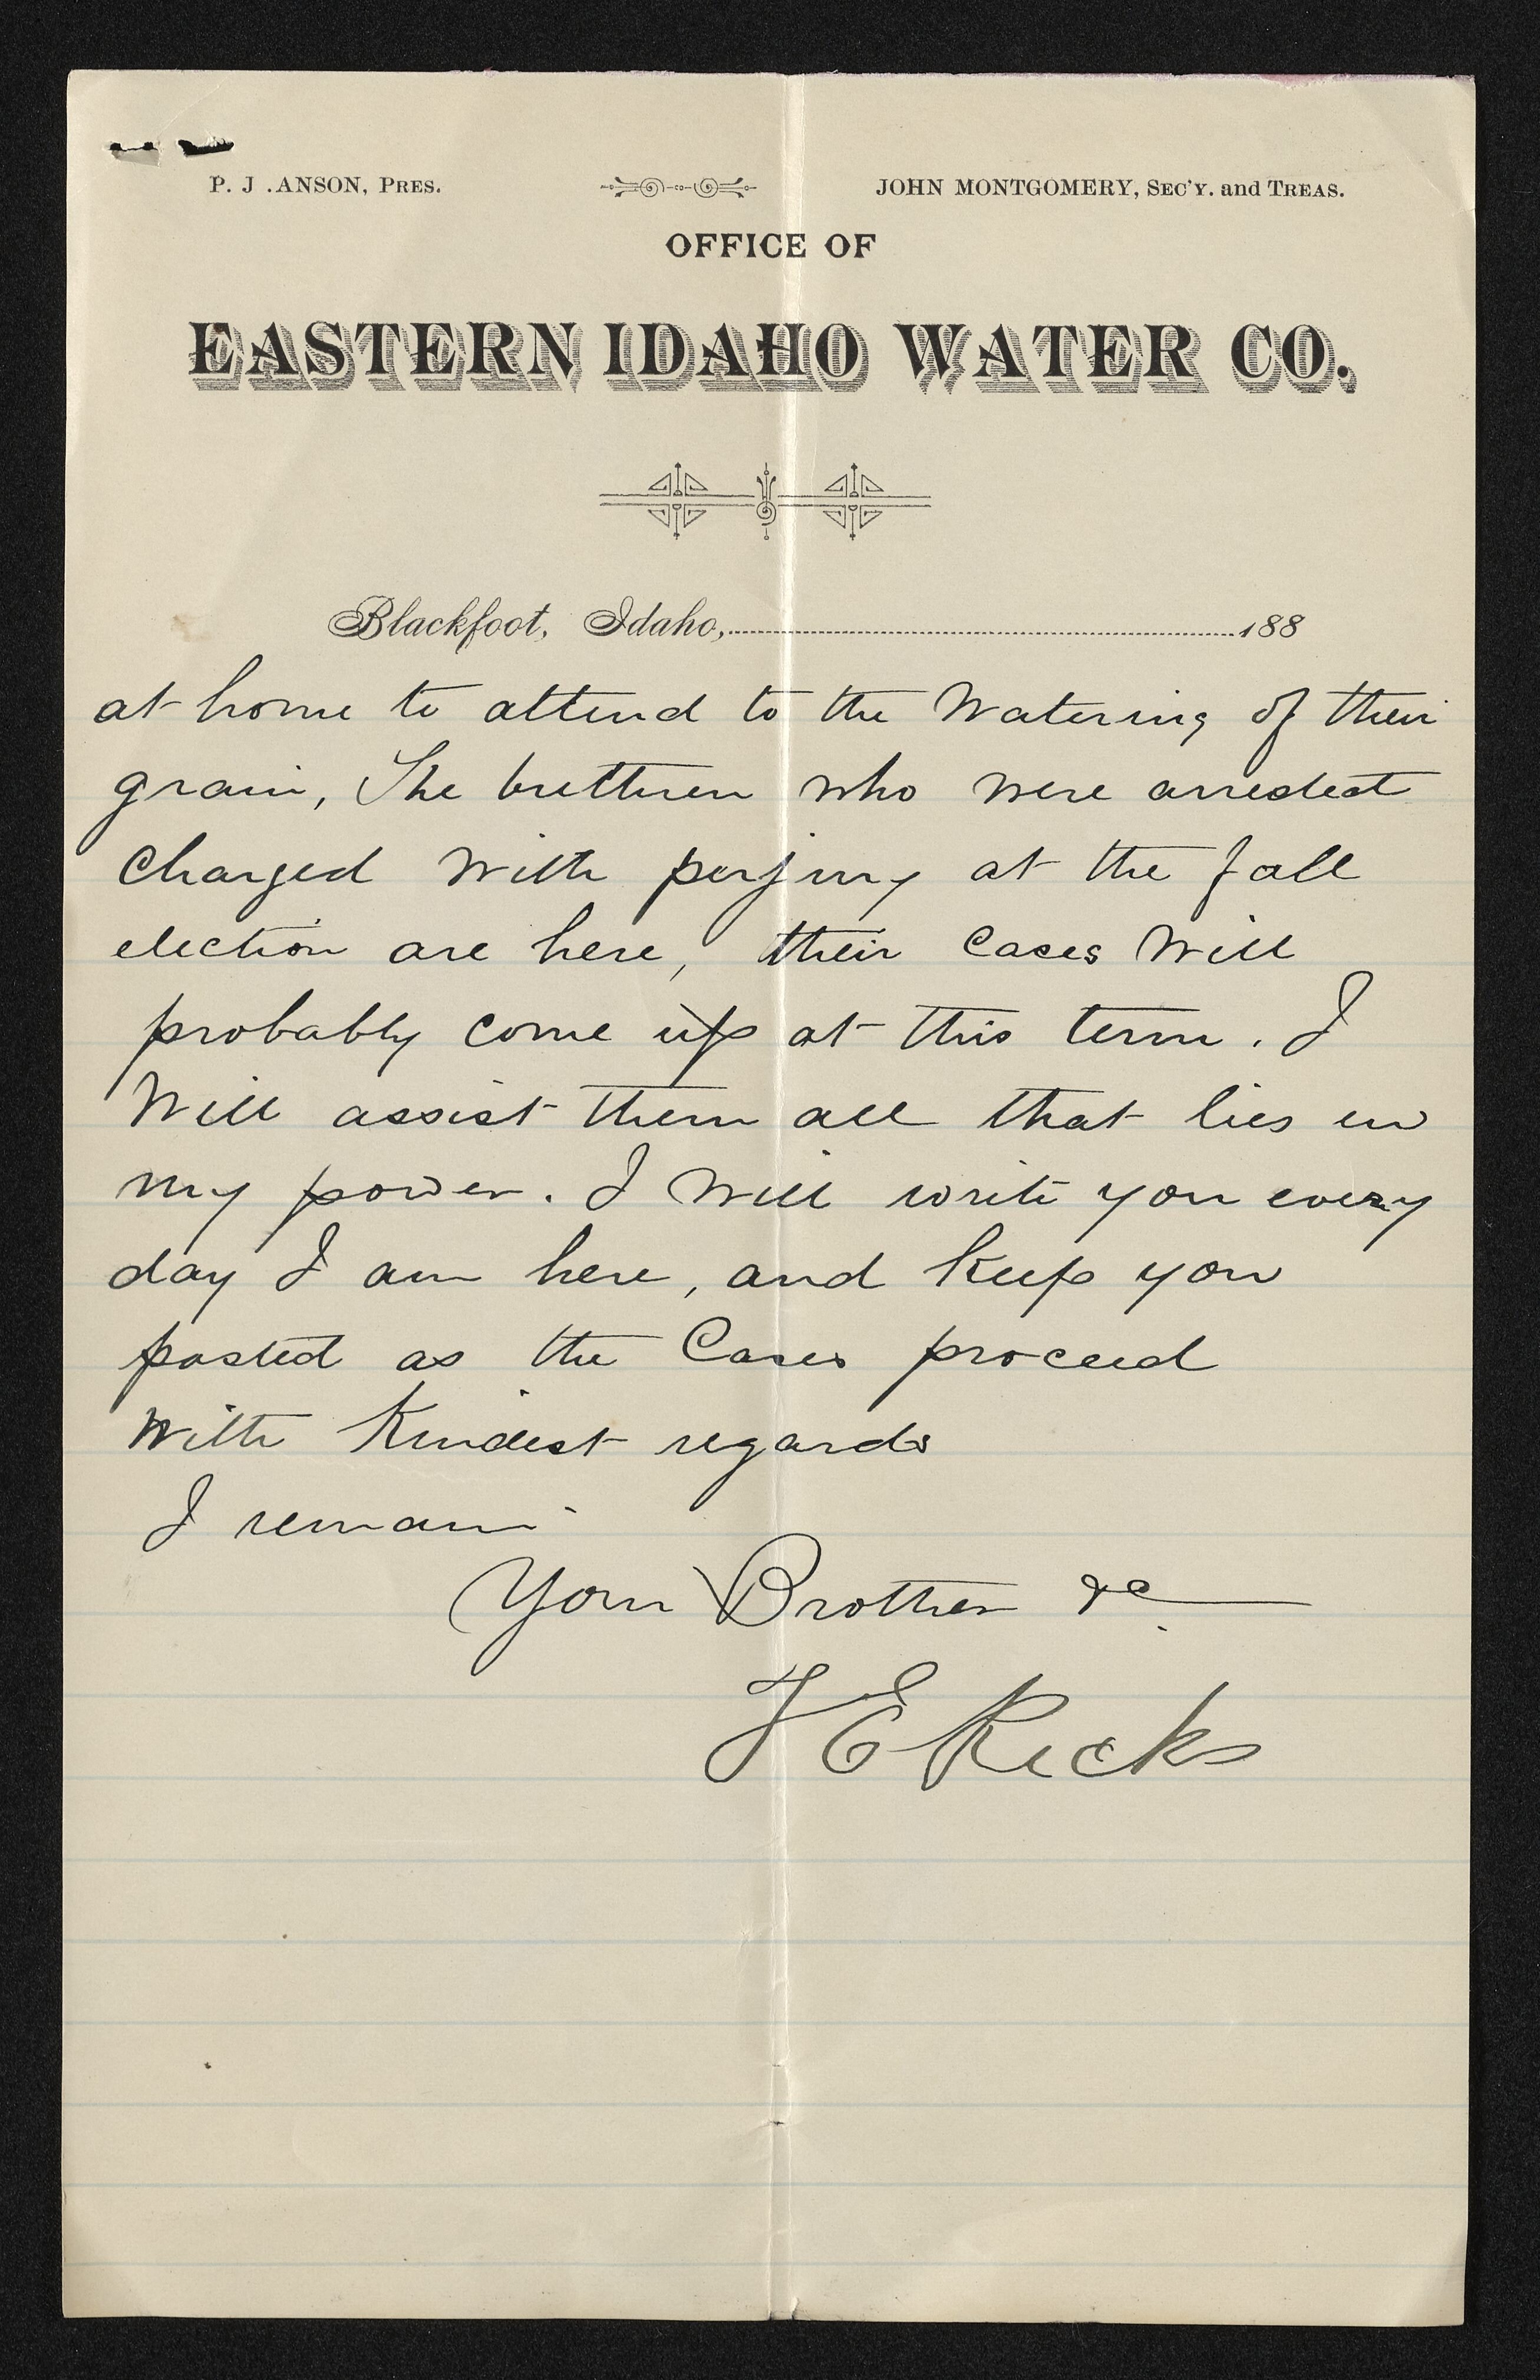 P. J .ANSON, PRES.
JOHN MONTGOMERY, SEC'Y. and TREAS.
OFFICE OF
EASTERN IDAHO WATER CO.
Blackfoot, Idaho,........................188
at home to attend to the Watering of their
grain, The brethren who were arrested
Charged With perjury at the fall
election are here, their Cases Will
probably come up at this term. I
Will assist them all that lies in
my power. I Will write you every
day I am here, and Keep you
posted as the Cases proceed
With Kindest regards
I remain
Your Brother &c
T E Ricks